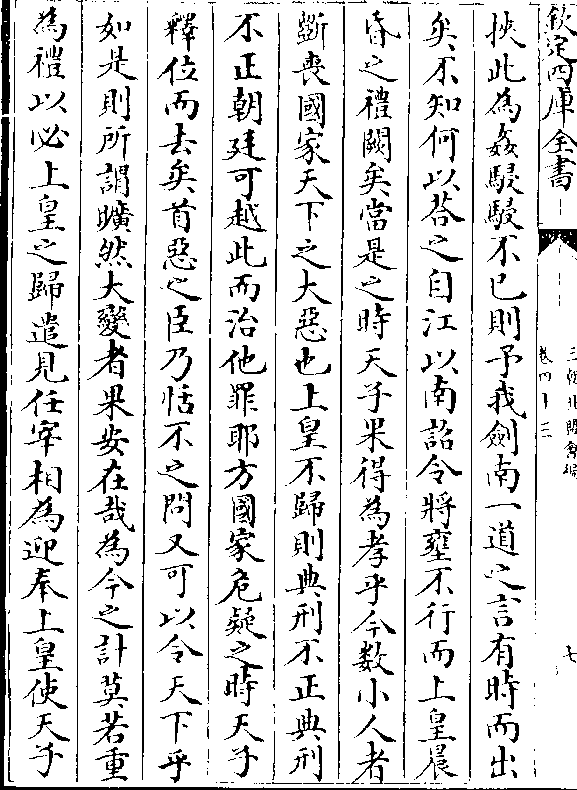 欽定四庫全書
三朝北盟會編
卷四十三
七
挾此為姦駸駸不已則予我劍南一道之言有時而出
矣不知何以荅之自江以南詔令將壅不行而上皇晨
昏之禮闕矣當是之時天子果得為孝乎今數小人者
斲喪國家天下之大惡也上皇不歸則典刑不正典刑
不正朝廷可越此而治他罪耶方國家危疑之時天子
釋位而去矣首惡之臣乃恬不之問又可以令天下乎
如是則所謂曠然大變者果安在哉為今之計莫若重
為禮以必上皇之歸遣見任宰相為迎奉上皇使天子